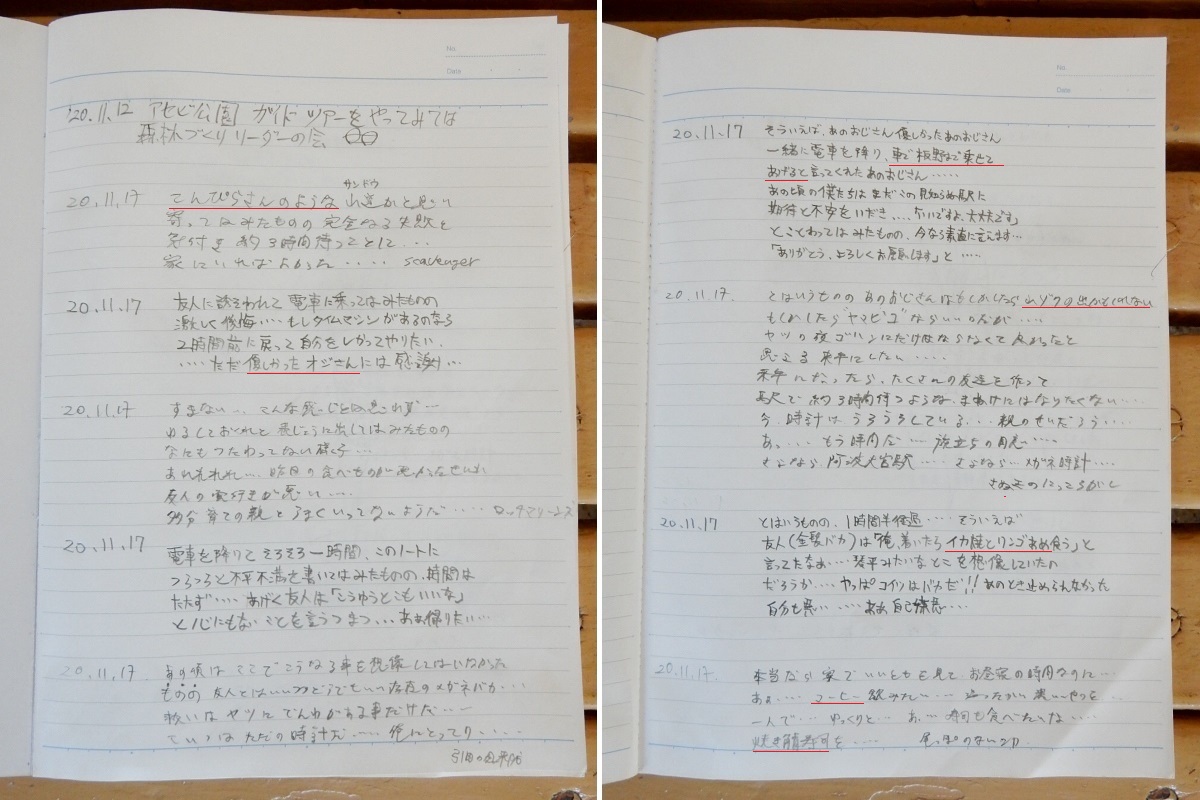 No.
Date
'20.11.12 アセビ公園 ガイドツアーをやってみては
森林づくりリーダーの会
20.11.17 こんぴらさんのような れ道かと思い
サンドウ
寄ってはみたものの 完全なる失敗を
気付き 約3時間待つことに...
家にいればよかった ..... scavenger
20.11.17 友人に誘そわれて 電車に乗ってはみたものの
激しく後悔.... もしタイムマシンがあるのなら
2時間前に戻って自分をしかってやりたい.
....ただ優しかったオジさんには感謝...
20.11.17 すまない... こんな感じとは思わず...
ゆるしておくれと 表じょうに出してはみたものの
なにもつたわってない様子...
あれれれれ... 昨日の食べものが
友人の が悪い....
多分 育ての親とうまくいってないようだ.....
20.11.17
電車を降りて そろそろ一時間、このノートに
つらつらと不平不満を書いてはみたものの、時間は
たたず.... あげく友人は「こうゆうとこもいいな」
と心にもないことを言うしまつ... ああ帰りたい...
20.11.17 あの頃は ここでこうなる事を想像してはいなかった
ものの 友人とはいいつつどうでもいい存在のメガネバカ...
救いは ヤツに でんわがある事だけだ...
こいつはただの時計だ..... 俺にとって.....
引田の
No.
Date
20.11.17 そういえば、あのおじさん 優しかったあのおじさん
一緒に電車を降り、車で板野まで乗せて
あげると言ってくれた あのおじさん .....
あの頃の僕たちは まだこの見知らぬ駅に
期待と不安をいだき....「いいですよ、大丈夫です」
とことわってはみたものの、今なら素直に言えます...
「ありがとう、よろしくお願いします」と .....
20.11.17. とはいうものの あのおじさんはもしかしたら 山ゾクの出かもしれない
もしかしたら"ヤマビコ"ならいいのだが ....
ヤツの夜ゴハンにだけはならなくて良かったと
思える 来年にしたい .....
来年になったら、たくさんの友達を作って
駅で 約3時間待つような、まぬけにはなりたくない....
今、時計は うろうろしている... 親のせいだろう....
あ.... もう時間だ... 旅立ちの時....
さよなら 阿波大宮駅..... さよなら... メガネ時計....
さぬきの
20.11.17 とはいうものの、1時間半経過.... そういえば
友人(金髪バカ)は「俺、着いたらイカ焼とリンゴあめ食う」と
言ってたなぁ... 琴平みたいなとこを想像していたの
だろうか.... やっぱコイツはバカだ!! あのとき止められなかった
自分も悪い ..... ああ 自己嫌悪...
20.11.17. 本当だら 家でいいともを見て お昼寝の時間なのに...
あぁ.... コーヒー飲みたい... あったかい 黒いやつを...
一人で... ゆっくりと... あ... 寿司も食べたいな....
焼き鯖寿司を .....